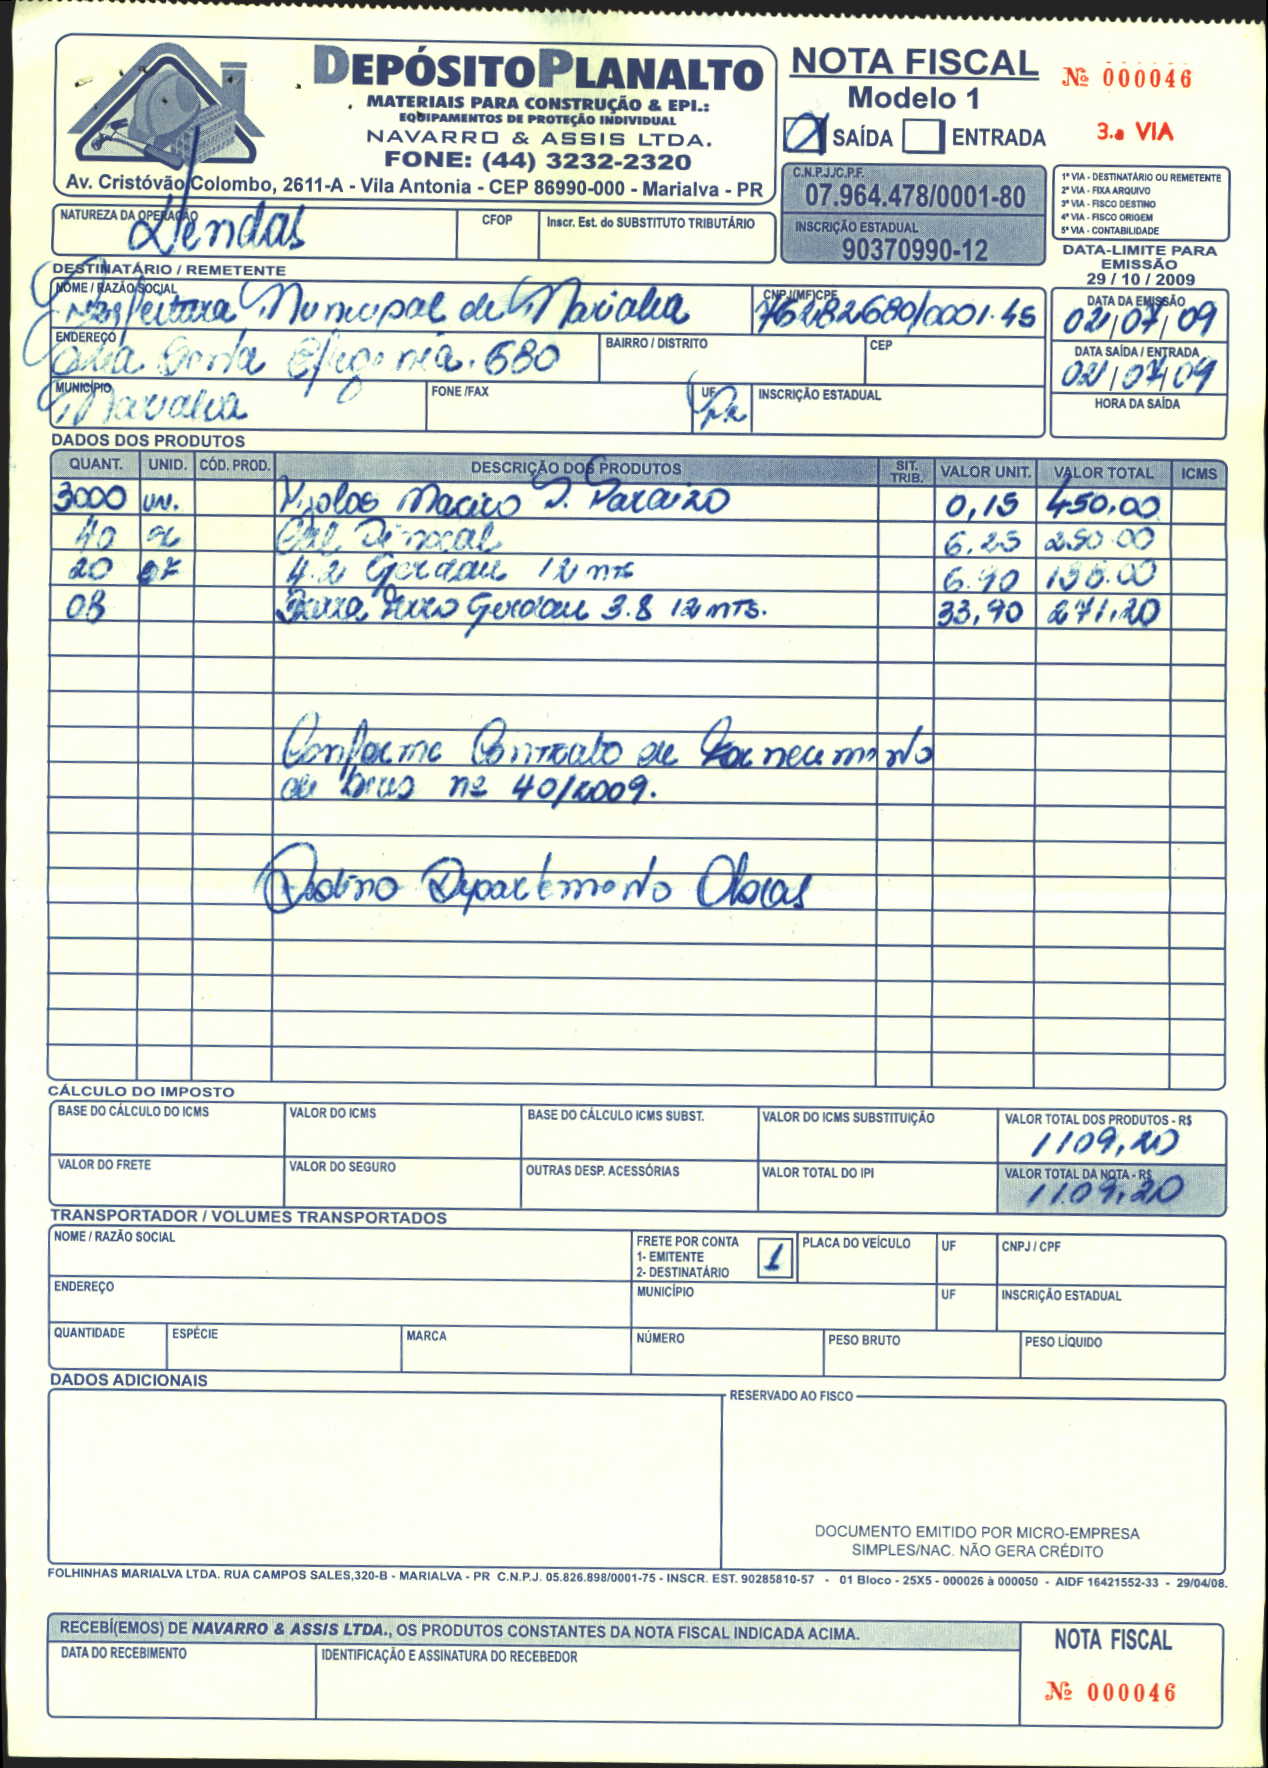 DEPÓSITO PLANALTO
MATERIAIS PARA CONSTRUÇÃO & EPI.:
EQUIPAMENTOS DE PROTEÇÃO INDIVIDUAL
NAVARRO & ASSIS LTDA.
FONE: (44) 3232-2320
Av. Cristóvão Colombo, 2611-A - Vila Antonia - CEP 86990-000 - Marialva - PR
NOTA FISCAL
Modelo 1
SAÍDA ENTRADA
Nº 000046
3.a VIA
C.N.P.J./C.P.F.
07.964.478/0001-80
INSCRIÇÃO ESTADUAL
90370990-12
1ª VIA - DESTINATÁRIO OU REMETENTE
2ª VIA - FIXA ARQUIVO
3ª VIA - FISCO DESTINO
4ª VIA - FISCO ORIGEM
5ª VIA - CONTABILIDADE
DATA-LIMITE PARA
EMISSÃO
29 / 10 / 2009
NATUREZA DA OPERAÇÃO
Vendas
CFOP
Inscr. Est. do SUBSTITUTO TRIBUTÁRIO
DESTINATÁRIO / REMETENTE
NOME / RAZÃO SOCIAL
Prefeitura Municipal de Marialva
CNPJ(MF)CPF
76282680/0001-45
DATA DA EMISSÃO
02/07/09
ENDEREÇO
Rua Santa Efigenia. 680
BAIRRO / DISTRITO
CEP
DATA SAÍDA / ENTRADA
02/07/09
MUNICÍPIO
Marialva
FONE /FAX
UF
Pr
INSCRIÇÃO ESTADUAL
HORA DA SAÍDA
DADOS DOS PRODUTOS
QUANT. UNID. CÓD. PROD. DESCRIÇÃO DOS PRODUTOS SIT. TRIB. VALOR UNIT. VALOR TOTAL ICMS
3000 un. Tijolos Maciço S. Paraizo 0,15 450,00
40 Cal 6.25 250.00
20 4.2 Gerdau 12 mts 6.90 138.00
08 Barra Ferro Gerdau 3.8 12 mts. 33,90 271,20
Conforme Contrato de Fornecimento
de nº 40/2009.
Destino Departamento Obras
CÁLCULO DO IMPOSTO
BASE DO CÁLCULO DO ICMS
VALOR DO ICMS
BASE DO CÁLCULO ICMS SUBST.
VALOR DO ICMS SUBSTITUIÇÃO
VALOR TOTAL DOS PRODUTOS - R$
1109,20
VALOR DO FRETE
VALOR DO SEGURO
OUTRAS DESP. ACESSÓRIAS
VALOR TOTAL DO IPI
VALOR TOTAL DA NOTA - R$
1109,20
TRANSPORTADOR / VOLUMES TRANSPORTADOS
NOME / RAZÃO SOCIAL
FRETE POR CONTA
1- EMITENTE
2- DESTINATÁRIO
1
PLACA DO VEÍCULO
UF
CNPJ / CPF
ENDEREÇO
MUNICÍPIO
UF
INSCRIÇÃO ESTADUAL
QUANTIDADE
ESPÉCIE
MARCA
NÚMERO
PESO BRUTO
PESO LÍQUIDO
DADOS ADICIONAIS
RESERVADO AO FISCO
DOCUMENTO EMITIDO POR MICRO-EMPRESA
SIMPLES/NAC. NÃO GERA CRÉDITO
FOLHINHAS MARIALVA LTDA. RUA CAMPOS SALES,320-B - MARIALVA - PR C.N.P.J. 05.826.898/0001-75 - INSCR. EST. 90285810-57 - 01 Bloco - 25X5 - 000026 à 000050 - AIDF 16421552-33 - 29/04/08.
RECEBÍ(EMOS) DE NAVARRO & ASSIS LTDA., OS PRODUTOS CONSTANTES DA NOTA FISCAL INDICADA ACIMA.
DATA DO RECEBIMENTO
IDENTIFICAÇÃO E ASSINATURA DO RECEBEDOR
NOTA FISCAL
Nº 000046